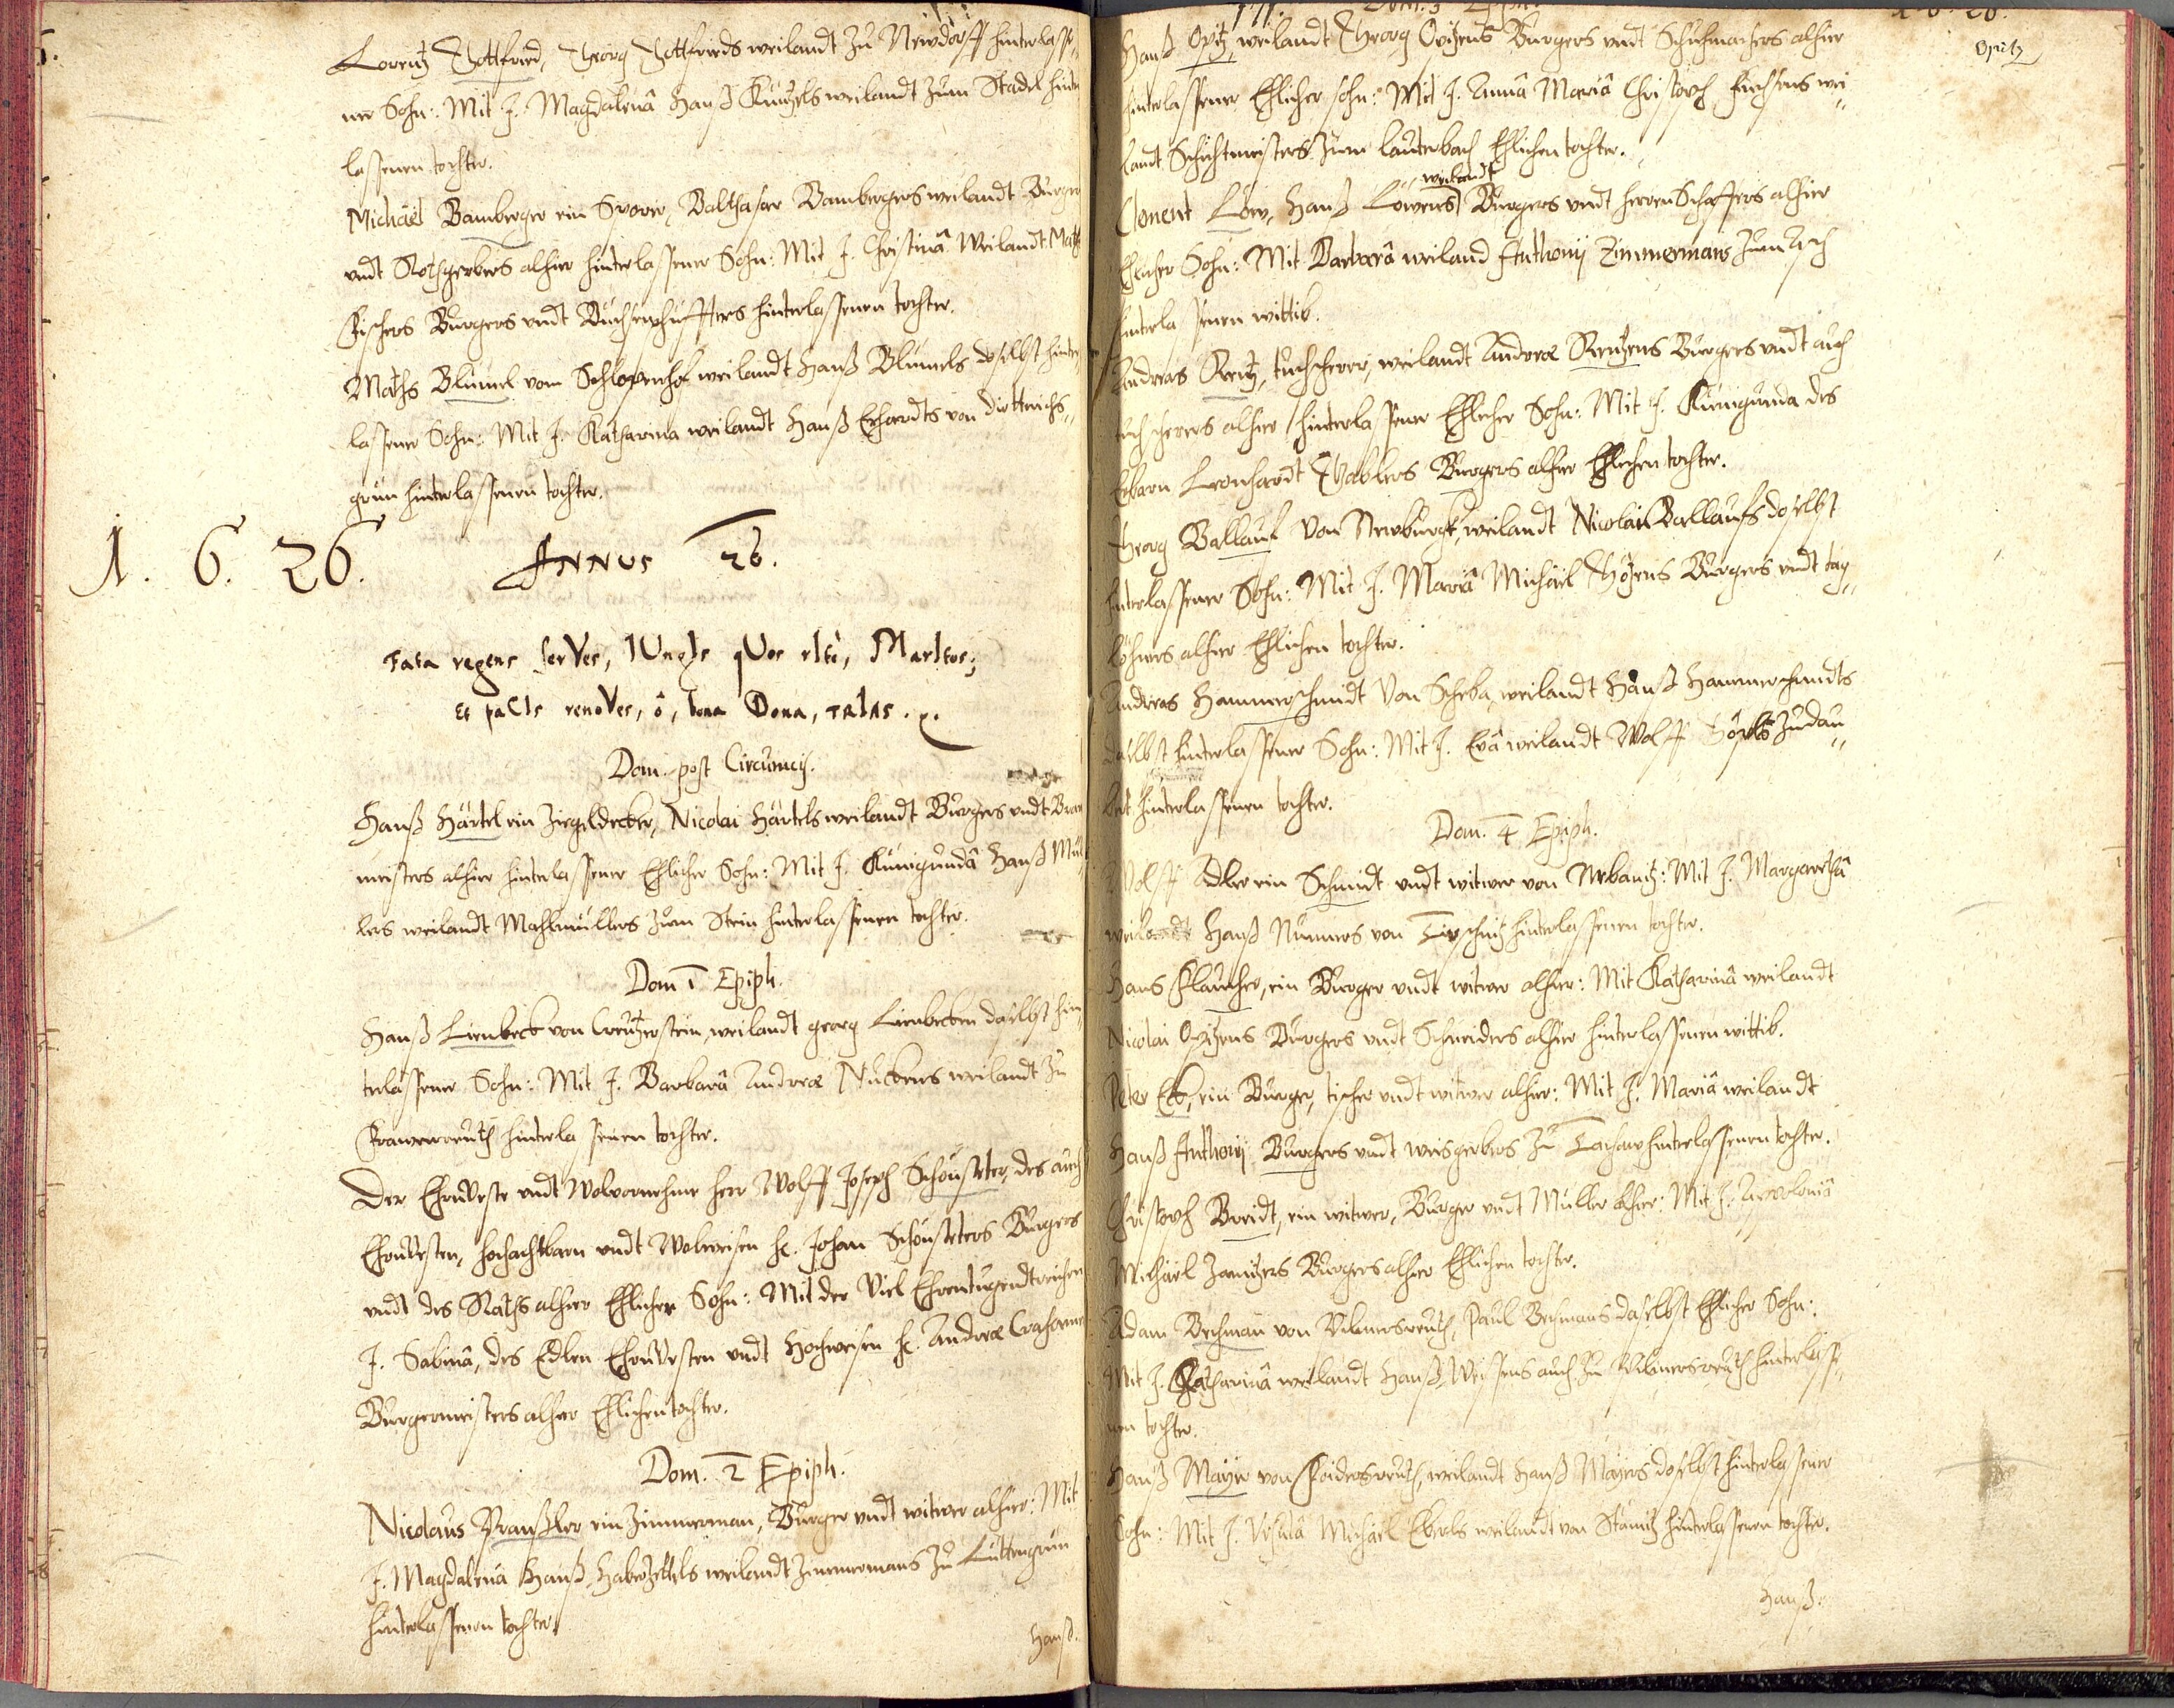 Lorentz Gottfried, Georg Gottfrieds weilandt zu Newdorff hinterlasse-
ner Sohn: Mit J. Magdalenâ Hanß Künzels weilandt zum Stadel hinter
lassenen tochter.
Michäel Bamberger ein Sporer, Balthasar Bambergers weilandt Burgers
undt Rothgerbers alhier hinterlassener Sohn: Mit J. Christinâ Weilandt Math
Fischers Burgers undt Büchsenschiffters hinterlassenen tochter.
Maths Blümel vom Schloppenhof weilandt Hanß Blümels doselbst hinter
lassener Sohn: Mit J. Katharina weilandt Hanß Erhardts von Diettrichs-
grün hinterlassenen tochter.
1. 6. 26. ANNUS 26.
Fata regens serVes, IUngIs qVos rItè, MarItos;
Et paCIs renoVes, ô, bona Dona, TRIAS.
Dom. post Circumcis.
Hanß Härtel ein Ziegeldecker, Nicolai Härtels weilandt Burgers undt Brau
meisters alhier hinterlassener Ehlicher Sohn: Mit J. Künigundâ Hanß Mül
lers weilandt Mahlmüllers zum Stein hinterlassenen tochter.
Dom 1 Epiph.
Hanß Lienbeck von Creützerstein, weilandt georg Lienbecken daselbst hin
terlassener Sohn: Mit J. Barbarâ Andreæ Nückers weilandt zu
Frawenreuth hinterlassenen tochter.
Der Ehrnveste undt Wolvornehme Herr Wolff Joseph Schönsteter, des auch
Ehrnvesten, hochachtbarn undt Wolweisen H. Johan Schönsteters Burgers
undt des Raths alhier Ehlicher Sohn: Mit der Viel Ehrentugendtreichen
J. Sabinâ, des Edlen Ehrnvesten undt Hochweisen H. Andreæ Crahamer
Burgermeisters alhier Ehlichen tochter.
Dom. 2 Epiph.
Nicolaus Praußler ein Zimmerman, Burger undt witwer alhier: Mit
J. Magdalenâ Hanß Haberzettels weilandt Zimmermans zu Lüttengrün
hinterlassenen tochter.
Hanß.
Dom. 3 Epiph.
1 6 26.
Hanß Opitz, weilandt Georg Opitzens Burgers undt Schuhmachers alhier
Opitz
hinterlassener Ehlicher sohn: Mit J. Annâ Mariâ Christoph Fuchsens wei-
landt Schichtmeisters zum Lauterbach Ehlichen tochter.
weilandt
Clement Löw, Hanß Löwens Burgers undt herrn Schaffers alhier
Ehlicher Sohn: Mit Barbarâ weiland Anthonij Zimmermans zum Asch
hinterlassenen wittib.
Andreas Reutz, tuchscherer, weilandt Andreæ Reutzens Burgers undt auch
tuchscherers alhier hinterlassener Ehlicher Sohn: Mit J. Künigunda des
Erbarn Leonhardt Gablers Burgers alhier Ehlichen tochter.
Georg Ballauf von Newburgk, weilandt Nicolai Ballaufs doselbst
hinterlassener Sohn: Mit J. Mariâ Michäel Bözens Burgers undt tag-
löhners alhier Ehlichen tochter.
Andreas Hammerschmidt von Scheba, weilandt Hanß Hammerschmidts
daselbst hinterlassener Sohn: Mit J. Evâ weilandt Wolff zu dau-
hinterlassenen tochter.
Dom. 4 Epiph.
Wolff Adler ein Schmidt undt witwer von Nebanitz: Mit J. Margarethâ
weilandt Hanß Nunners von Tirschnitz hinterlassenen tochter.
Hans Klaucher, ein Burger undt witwer alhier: Mit Katharinâ weilandt
Nicolai Opitzens Burgers undt Schneiders alhier hinterlassenen wittib.
Peter Eck, ein Burger, tischer undt witwer alhier: Mit J. Mariâ weilandt
Hanß Anthonij Burgers undt weisgerbers zu Tachaw hinterlassenen tochter.
Christoph Breidt, ein witwer, Burger undt Müller alhier: Mit J. Appoloniâ
Michäel Janitzers Burgers alhier Ehlichen tochter.
Adam Bechman von Voitersreuth, Paul Bechmans daselbst Ehlicher Sohn:
Mit J. Katharinâ weilandt Hanß Weissens auch zu hinterlasse-
nen tochter.
Hanß Mayer von Voidersreuth, weilandt Hanß Mayers doselbst hinterlassener
Sohn: Mit J. Ursulâ Michäel Eberls weilandt von Stänitz hinterlassenen tochter.
Hanß.